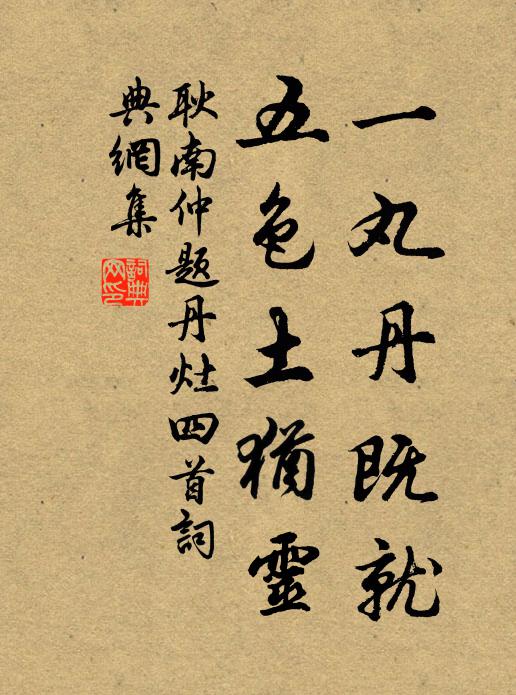 一丸丹既就
五色土猶靈
耿南仲题丹灶四首詞
典網集
詞典
网印